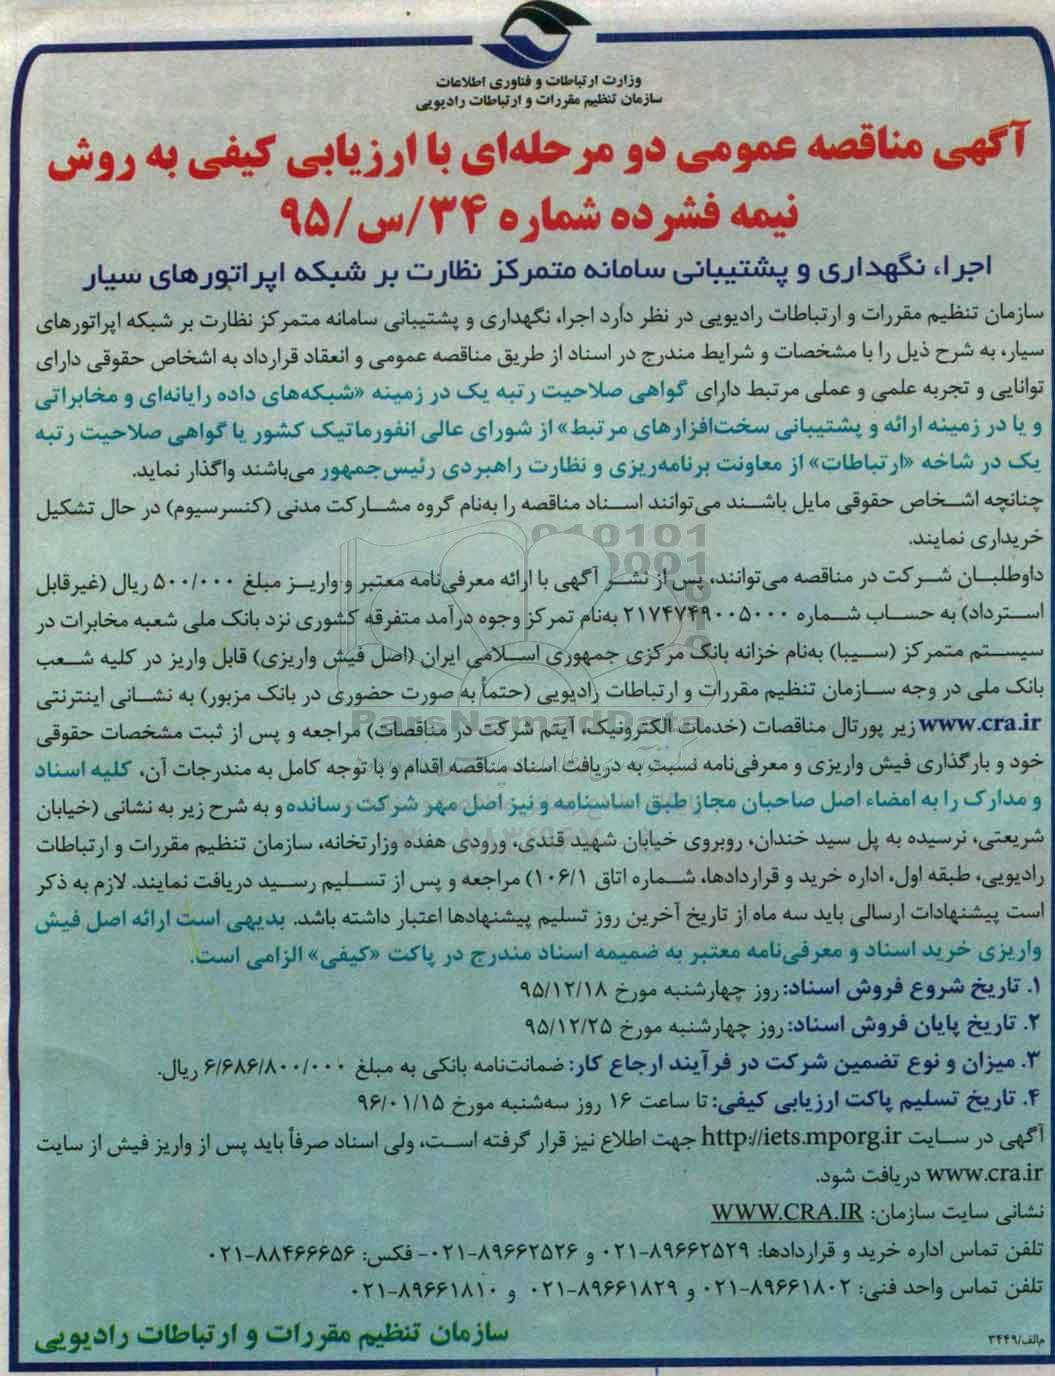 وزارت ارتباطات و فناوری اطلاعات
سازمان تنظیم مقررات و ارتباطات رادیویی
آگهی مناقصه عمومی دو مرحله‌ای با ارزیابی کیفی به روش
نیمه فشرده شماره ۳۴/س/۹۵
اجرا، نگهداری و پشتیبانی سامانه متمرکز نظارت بر شبکه اپراتورهای سیار
سازمان تنظیم مقررات و ارتباطات رادیویی در نظر دارد اجرا، نگهداری و پشتیبانی سامانه متمرکز نظارت بر شبکه اپراتورهای
سیار، به شرح ذیل را با مشخصات و شرایط مندرج در اسناد از طریق مناقصه عمومی و انعقاد قرارداد به اشخاص حقوقی دارای
توانایی و تجربه علمی و عملی مرتبط دارای گواهی صلاحیت رتبه یک در زمینه «شبکه‌های داده رایانه‌ای و مخابراتی
و یا در زمینه ارائه و پشتیبانی سخت‌افزارهای مرتبط» از شورای عالی انفورماتیک کشور یا گواهی صلاحیت رتبه
یک در شاخه «ارتباطات» از معاونت برنامه‌ریزی و نظارت راهبردی رئیس‌جمهور می‌باشند واگذار نماید.
چنانچه اشخاص حقوقی مایل باشند می‌توانند اسناد مناقصه را به‌نام گروه مشارکت مدنی (کنسرسیوم) در حال تشکیل
خریداری نمایند.
داوطلبان شرکت در مناقصه می‌توانند، پس از نشر آگهی با ارائه معرفی‌نامه معتبر و واریز مبلغ ۵۰۰/۰۰۰ ریال (غیرقابل
استرداد) به حساب شماره ۲۱۷۴۷۴۹۰۰۵۰۰۰ به‌نام تمرکز وجوه درآمد متفرقه کشوری نزد بانک ملی شعبه مخابرات در
سیستم متمرکز (سیبا) به‌نام خزانه بانک مرکزی جمهوری اسلامی ایران (اصل فیش واریزی) قابل واریز در کلیه شعب
بانک ملی در وجه سازمان تنظیم مقررات و ارتباطات رادیویی (حتماً به صورت حضوری در بانک مزبور) به نشانی اینترنتی
www.cra.ir زیر پورتال مناقصات (خدمات الکترونیک، آیتم شرکت در مناقصات) مراجعه و پس از ثبت مشخصات حقوقی
خود و بارگذاری فیش واریزی و معرفی‌نامه نسبت به دریافت اسناد مناقصه اقدام و با توجه کامل به مندرجات آن، کلیه اسناد
و مدارک را به امضاء اصل صاحبان مجاز طبق اساسنامه و نیز اصل مهر شرکت رسانده و به شرح زیر به نشانی (خیابان
شریعتی، نرسیده به پل سید خندان، روبروی خیابان شهید قندی، ورودی هفده وزارتخانه، سازمان تنظیم مقررات و ارتباطات
رادیویی، طبقه اول، اداره خرید و قراردادها، شماره اتاق ۱۰۶/۱) مراجعه و پس از تسلیم رسید دریافت نمایند. لازم به ذکر
است پیشنهادات ارسالی باید سه ماه از تاریخ آخرین روز تسلیم پیشنهادها اعتبار داشته باشد. بدیهی است ارائه اصل فیش
واریزی خرید اسناد و معرفی‌نامه معتبر به ضمیمه اسناد مندرج در پاکت «کیفی» الزامی است.
۱. تاریخ شروع فروش اسناد: روز چهارشنبه مورخ ۹۵/۱۲/۱۸
۲. تاریخ پایان فروش اسناد: روز چهارشنبه مورخ ۹۵/۱۲/۲۵
۳. میزان و نوع تضمین شرکت در فرآیند ارجاع کار: ضمانت‌نامه بانکی به مبلغ ۶/۶۸۶/۸۰۰/۰۰۰ ریال.
۴. تاریخ تسلیم پاکت ارزیابی کیفی: تا ساعت ۱۶ روز سه‌شنبه مورخ ۹۶/۰۱/۱۵
آگهی در سایت http://iets.mporg.ir جهت اطلاع نیز قرار گرفته است، ولی اسناد صرفاً باید پس از واریز فیش از سایت
www.cra.ir دریافت شود.
نشانی سایت سازمان: WWW.CRA.IR
تلفن تماس اداره خرید و قراردادها: ۸۹۶۶۲۵۲۹-۰۲۱ و ۸۹۶۶۲۵۲۶-۰۲۱- فکس: ۸۸۴۶۶۶۵۶-۰۲۱
تلفن تماس واحد فنی: ۸۹۶۶۱۸۰۲-۰۲۱ و ۸۹۶۶۱۸۲۹-۰۲۱ و ۸۹۶۶۱۸۱۰-۰۲۱
سازمان تنظیم مقررات و ارتباطات رادیویی
م/الف/۳۴۴۹
ParsNamadData